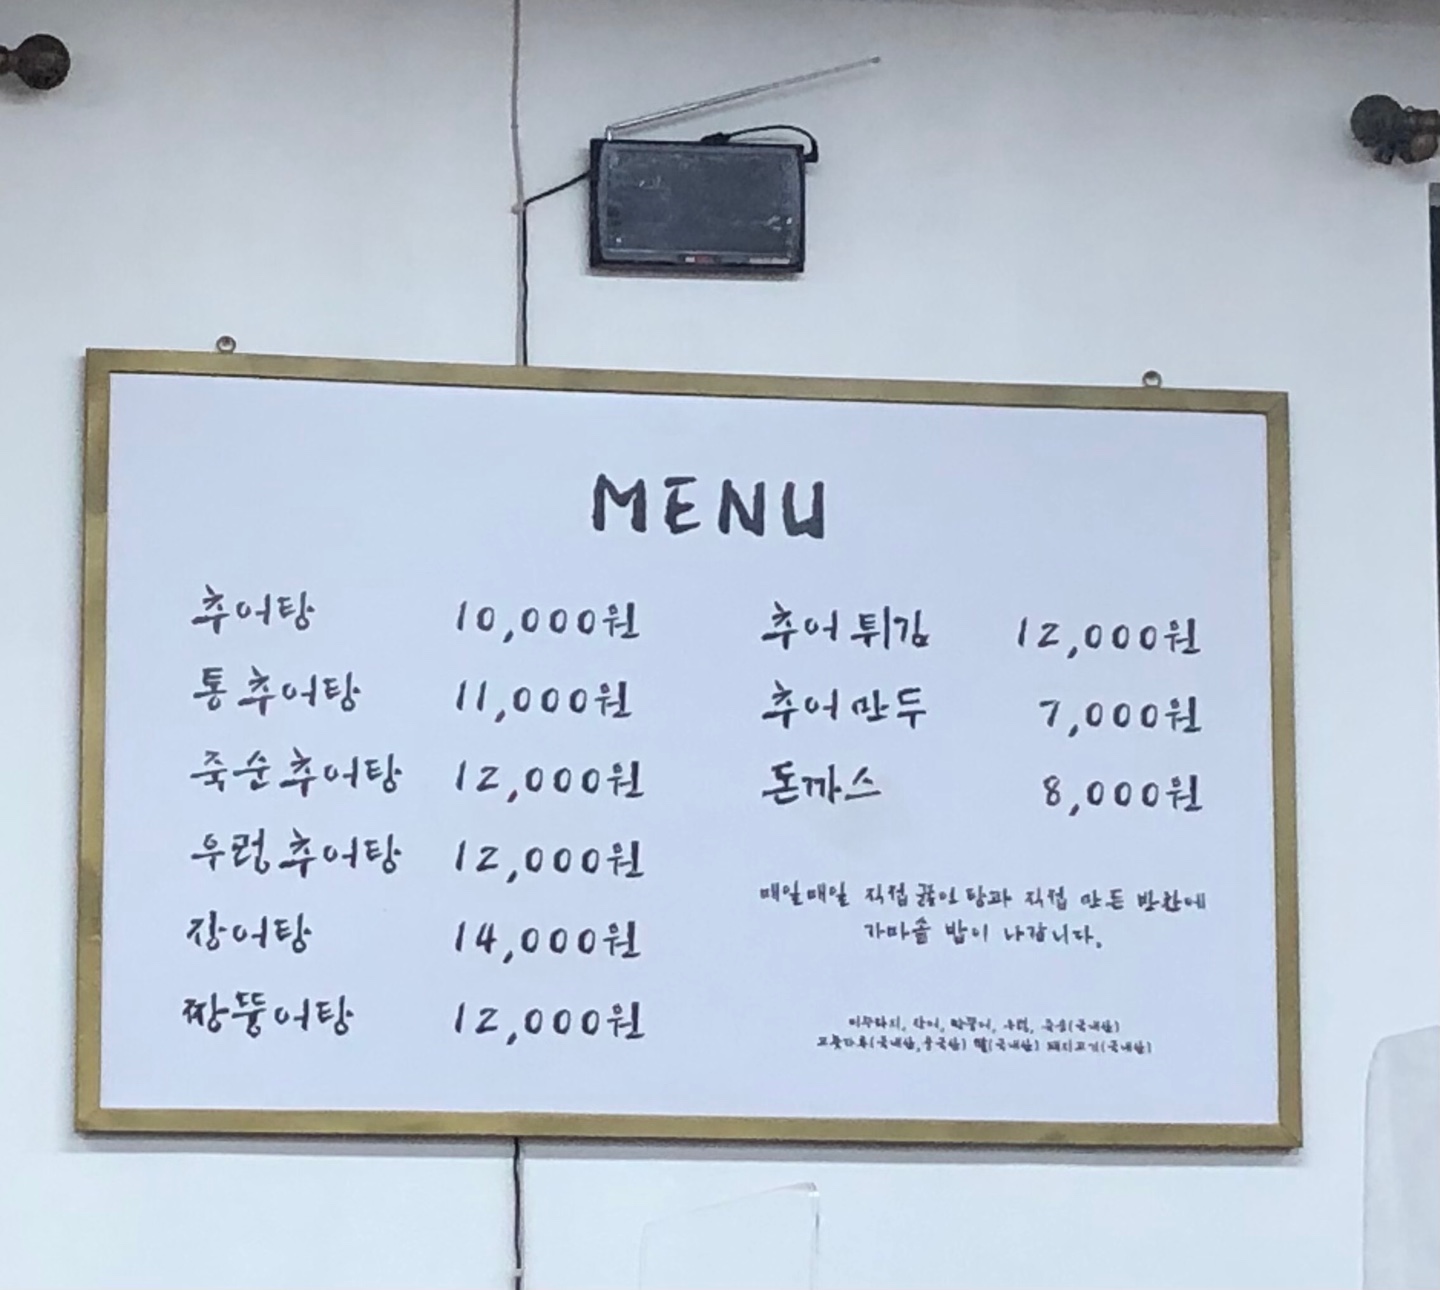 MENU
추어탕 10,000원
통추어탕 11,000원
죽순추어탕 12,000원
우렁추어탕 12,000원
장어탕 14,000원
짱뚱어탕 12,000원
추어튀김 12,000원
추어만두 7,000원
돈까스 8,000원
매일매일 직접 끓인 탕과 직접 만든 반찬에
가마솥 밥이 나갑니다.
미꾸라지, 장어, 짱뚱어, 우렁, 죽순(국내산)
고춧가루(국내산,중국산) 쌀(국내산) 돼지고기(국내산)